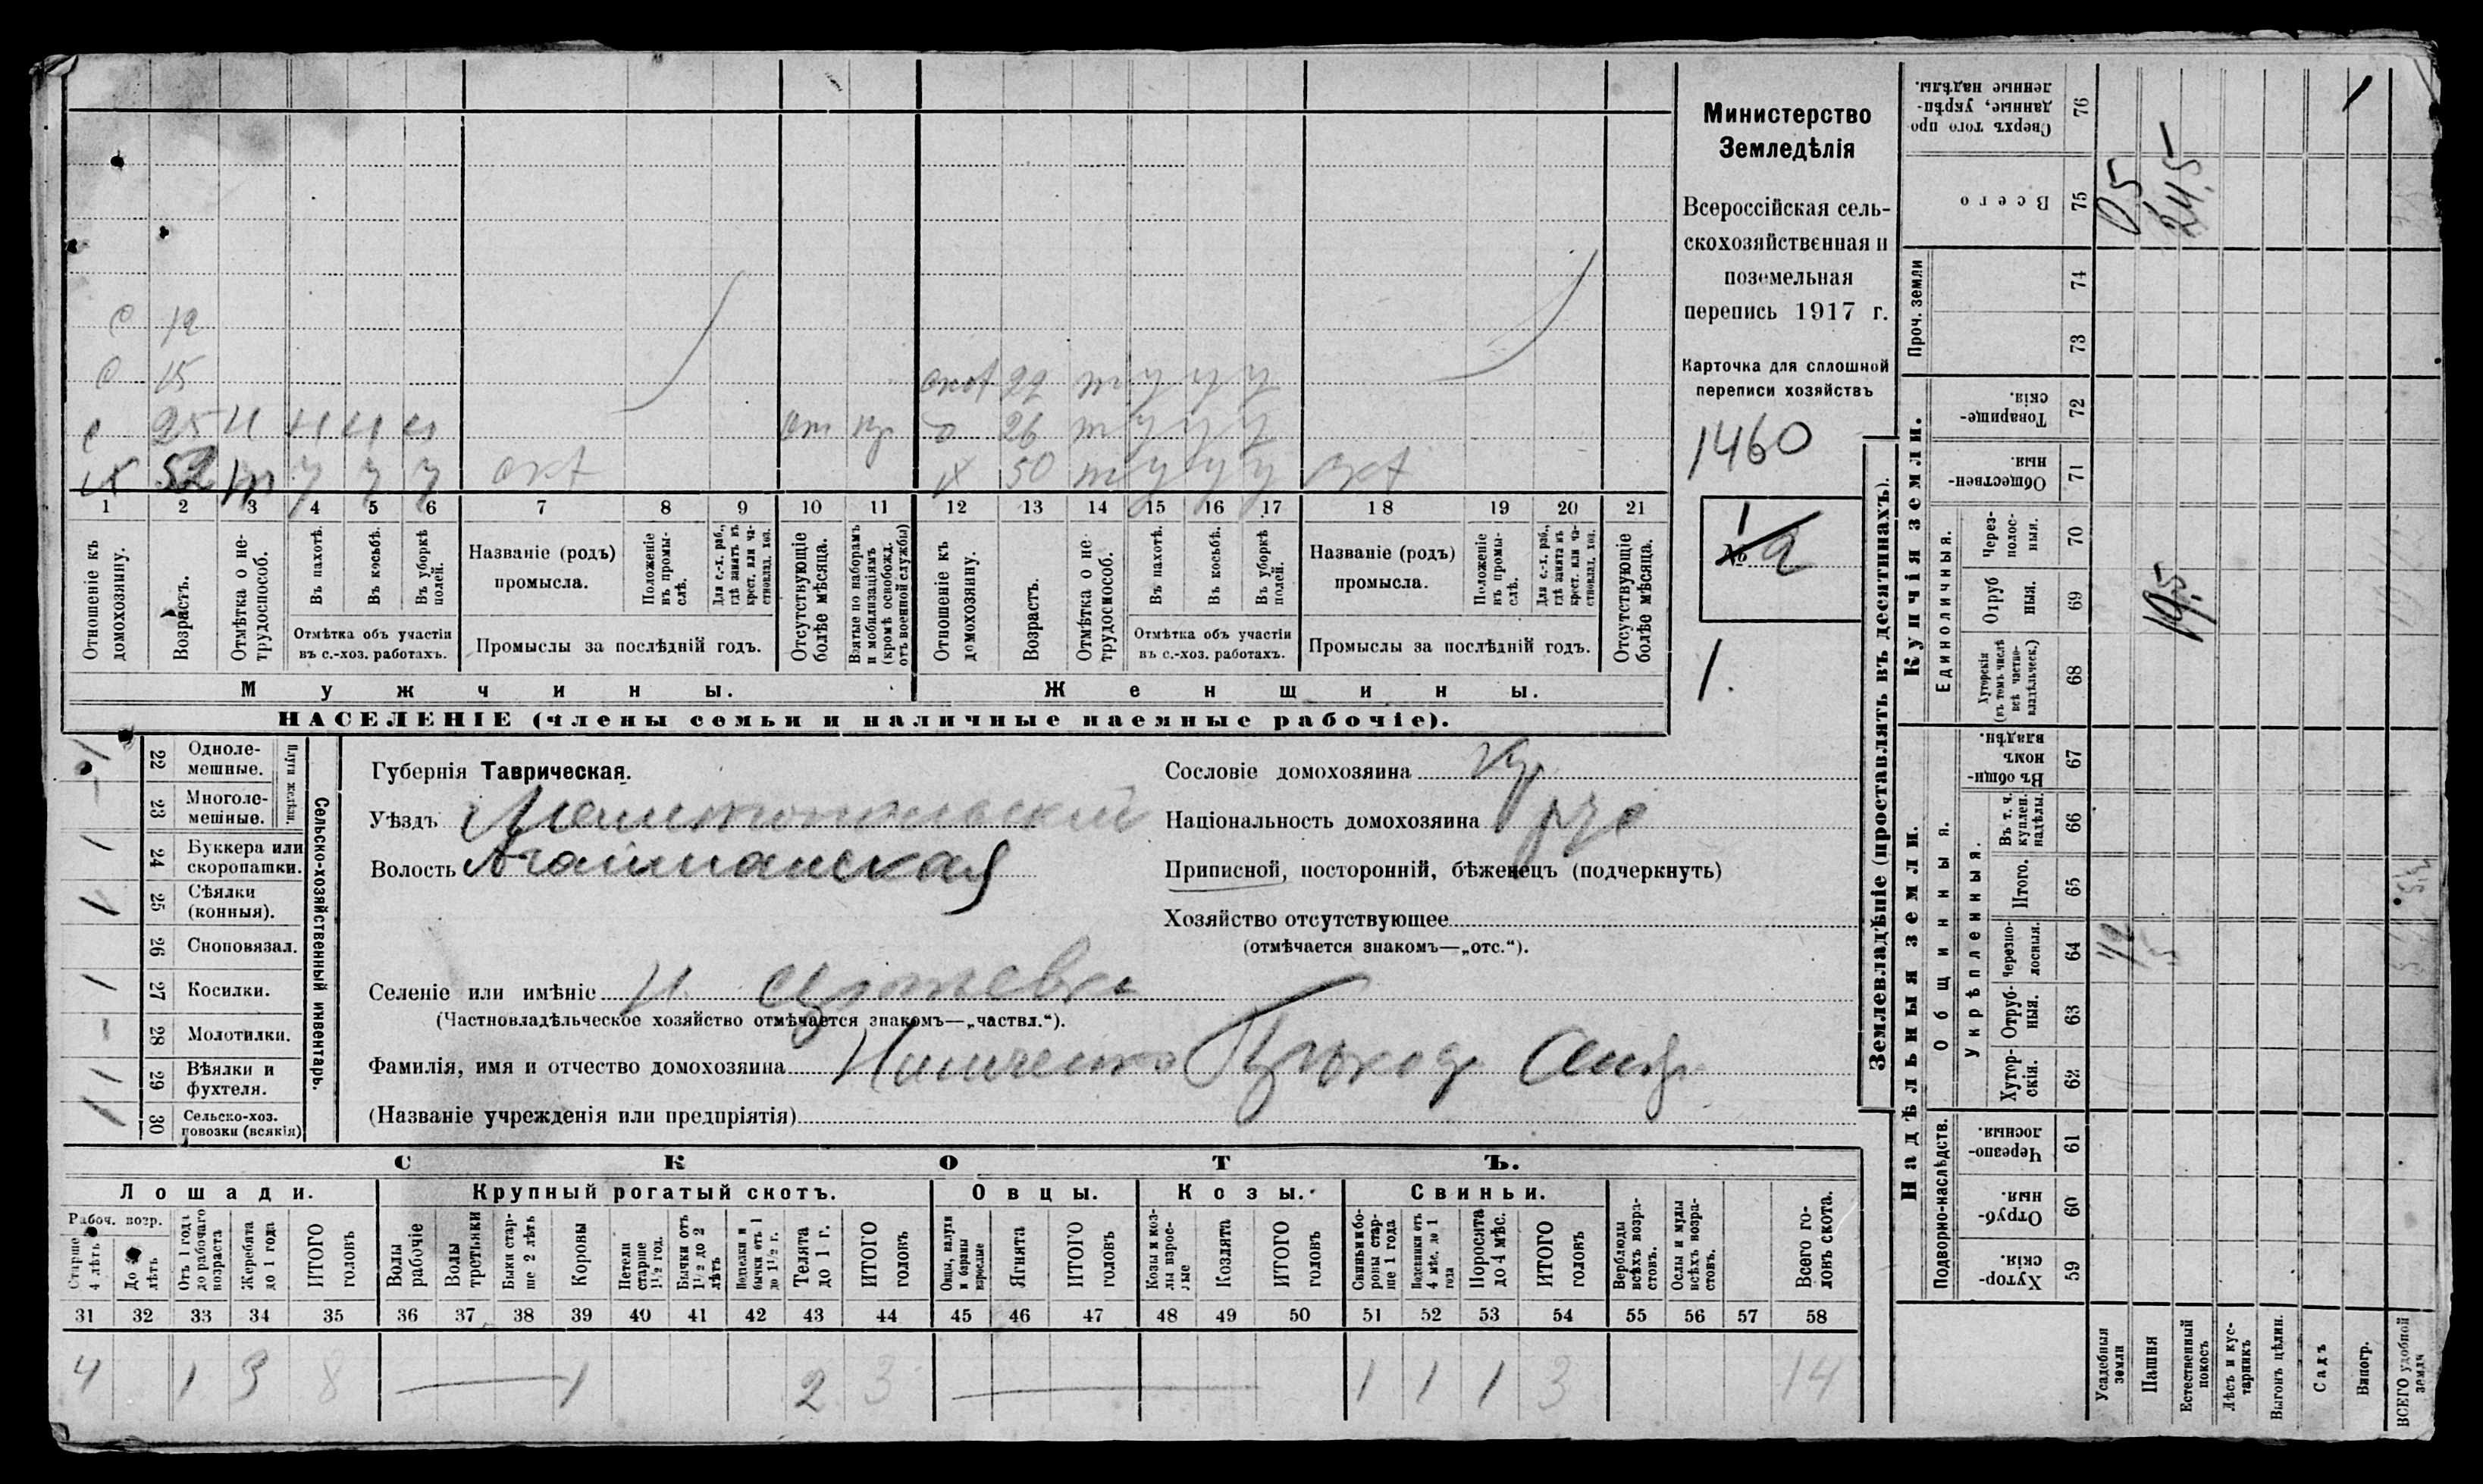 Министерство
Земледѣлія
Всероссійская сель-
скохозяйственная и
поземельная
перепись 1917 г.
Карточка для сплошной
переписи хозяйствъ
1460
№ 2
1
1.
С 12
С 15
С 25 н н н н от кр
52 т у у у окт
окт 22 т у у у
26 т у у у
50 т у у у окт
1 2 3 4 5 6 7 8 9 10 11 12 13 14 15 16 17 18 19 20 21
Отношеніе къ домохозяину.
Возрастъ.
Отмѣтка о не-трудоспособ.
Въ пахотѣ.
Въ косьбѣ.
Въ уборкѣ полей.
Отмѣтка объ участіи
въ с.-хоз. работахъ.
Названіе (родъ)
промысла.
Положеніе въ промы-слѣ.
Для с.-х. раб., гдѣ занятъ въ крест. или ча-стновлад. хоз.
Промыслы за послѣдній годъ.
Отсутствующіе болѣе мѣсяца.
Взятые по наборамъ и мобилизаціямъ (кромѣ освобожд. отъ военной службы)
Отношеніе къ домохозяину.
Возрастъ.
Отмѣтка о не-трудоспособ.
Въ пахотѣ.
Въ косьбѣ.
Въ уборкѣ полей.
Отмѣтка объ участіи
въ с.-хоз. работахъ.
Названіе (родъ)
промысла.
Положеніе въ промы-слѣ.
Для с.-х. раб., гдѣ занятъ въ крест. или ча-стновлад. хоз.
Промыслы за послѣдній годъ.
Отсутствующіе болѣе мѣсяца.
Мужчины.
Женщины.
НАСЕЛЕНІЕ (члены семьи и наличные наемные рабочіе).
Сельско-хозяйственный инвентарь.
Плуги желѣзн.
1 22 Одноле-мешные.
– 23 Многоле-мешные.
1 24 Буккера или скоропашки.
1 25 Сѣялки (конныя).
26 Сноповязал.
1 27 Косилки.
– 28 Молотилки.
1 29 Вѣялки и фухтеля.
1 30 Сельско-хоз. повозки (всякія)
Губернія Таврическая.
Уѣздъ Мелитопольскій
Волость Агайманская
Сословіе домохозяина кр
Національность домохозяина рус
Приписной, посторонній, бѣженецъ (подчеркнуть)
Хозяйство отсутствующее
(отмѣчается знакомъ—„отс.“).
Селеніе или имѣніе
(Частновладѣльческое хозяйство отмѣчается знакомъ—„частвл.“).
Фамилія, имя и отчество домохозяина
(Названіе учрежденія или предпріятія)
СКОТЪ.
Лошади.
Крупный рогатый скотъ.
Овцы.
Козы.
Свиньи.
Рабоч. возр.
Старше 4 лѣтъ
До лѣтъ
Отъ 1 года до рабочаго возраста
Жеребята до 1 года
ИТОГО головъ
Волы рабочіе
Волы третьяки
Быки стар-ше 2 лѣтъ
Коровы
Нетели старше 1½ год.
Бычки отъ 1½ до 2 лѣтъ
Подтелки и бычки отъ 1 до 1½ г.
Телята до 1 г.
ИТОГО головъ
Овцы, валухи и бараны взрослые
Ягнята
ИТОГО головъ
Козы и коз-лы взрос-лые
Козлята
ИТОГО головъ
Свиньи и бо-ровы стар-ше 1 года
Подсвинки отъ 4 мѣс. до 1 года
Поросята до 4 мѣс.
ИТОГО головъ
Верблюды всѣхъ возра-стовъ.
Ослы и мулы всѣхъ возра-стовъ.
Всего го-ловъ скота.
31 32 33 34 35 36 37 38 39 40 41 42 43 44 45 46 47 48 49 50 51 52 53 54 55 56 57 58
4 1 3 8 1 2 3 1 1 1 3 14
Землевладѣніе (проставлять въ десятинахъ).
Надѣльныя земли.
Купчія земли.
Проч. земли
Подворно-наслѣдств.
Общинныя.
Укрѣпленныя.
Единоличныя.
Сверхъ того про-данные, укрѣп-ленные надѣлы. 76
Всего 75
74
73
Товарище-скія. 72
Обществен-ныя. 71
Через-полос-ныя. 70
Отруб ныя. 69
Хуторскія (въ томъ числѣ всѣ частно-владѣльческ.) 68
Въ общин-номъ владѣн. 67
Въ т. ч. куплен. надѣлы. 66
Итого. 65
Черезпо-лосныя. 64
Отруб-ныя. 63
Хутор-скія. 62
Черезпо-лосныя. 61
Отруб-ныя. 60
Хутор-скія. 59
0,5
24,5
19,5
5
1
Усадебныя земли
Пашня
Естественный покосъ
Лѣсъ и кус-тарникъ
Выгонъ цѣлин.
Садъ
Виногр.
ВСЕГО удобной земли